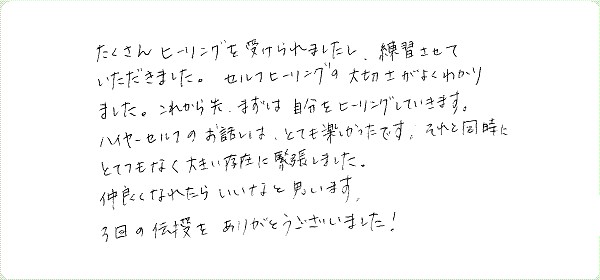 たくさん ヒーリングを受けられましたし、練習させて
いただきました。 セルフヒーリングの 大切さがよくわかり
ました。これから先、まずは 自分をヒーリングしていきます。
ハイヤーセルフのお話しは、とても楽しかったです。それと同時に
とてつもなく 大きい存在に 緊張しました。
仲良くなれたら いいなと 思います。
3回の伝授を ありがとうございました！